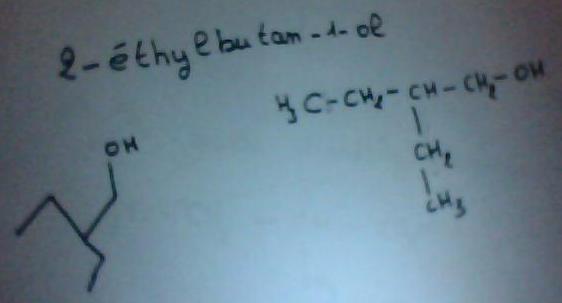 2-éthylbutan-1-ol
H3C-CH2-CH-CH2-OH
CH2
CH3
OH